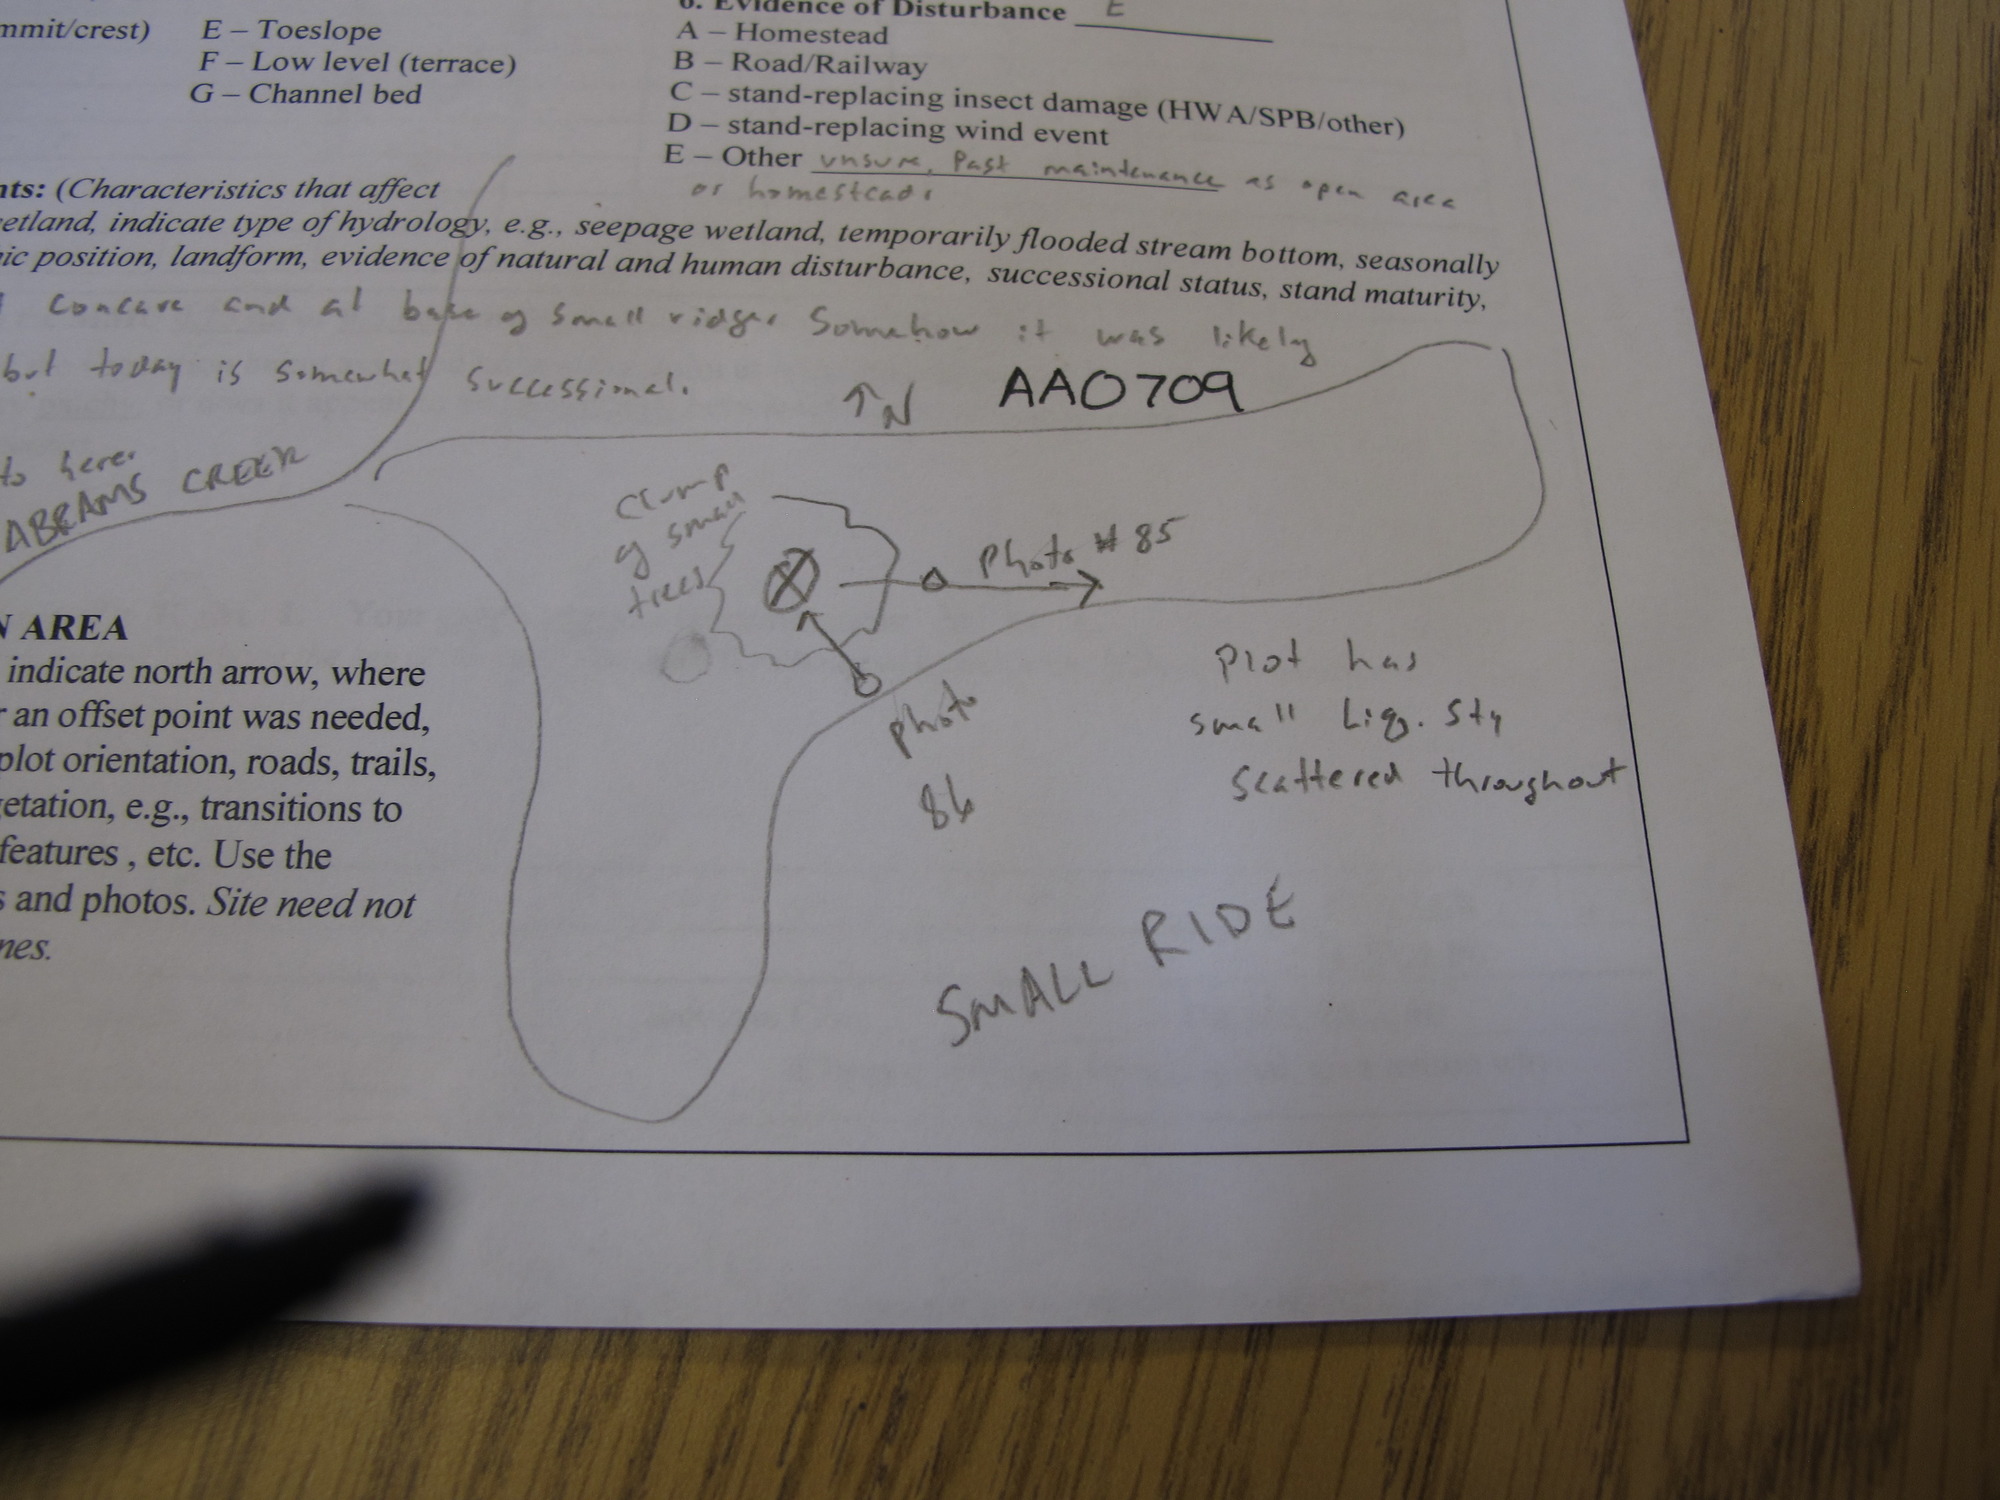 mmit/crest) E – Toeslope
F – Low level (terrace)
G – Channel bed
6. Evidence of Disturbance E
A – Homestead
B – Road/Railway
C – stand-replacing insect damage (HWA/SPB/other)
D – stand-replacing wind event
E – Other unsure, Past maintenance as open area
or homestead.
nts: (Characteristics that affect
etland, indicate type of hydrology, e.g., seepage wetland, temporarily flooded stream bottom, seasonally
ic position, landform, evidence of natural and human disturbance, successional status, stand maturity,
concave and at base of small ridge. Somehow it was likely
but today is somewhat successional.
to here.
↑N AAO709
ABRAMS CREEK
Clump
of small
trees
Photo #85
photo
86
Plot has
small Liq. Sty
scattered throughout
SMALL RIDE
N AREA
indicate north arrow, where
r an offset point was needed,
plot orientation, roads, trails,
getation, e.g., transitions to
features , etc. Use the
s and photos. Site need not
nes.